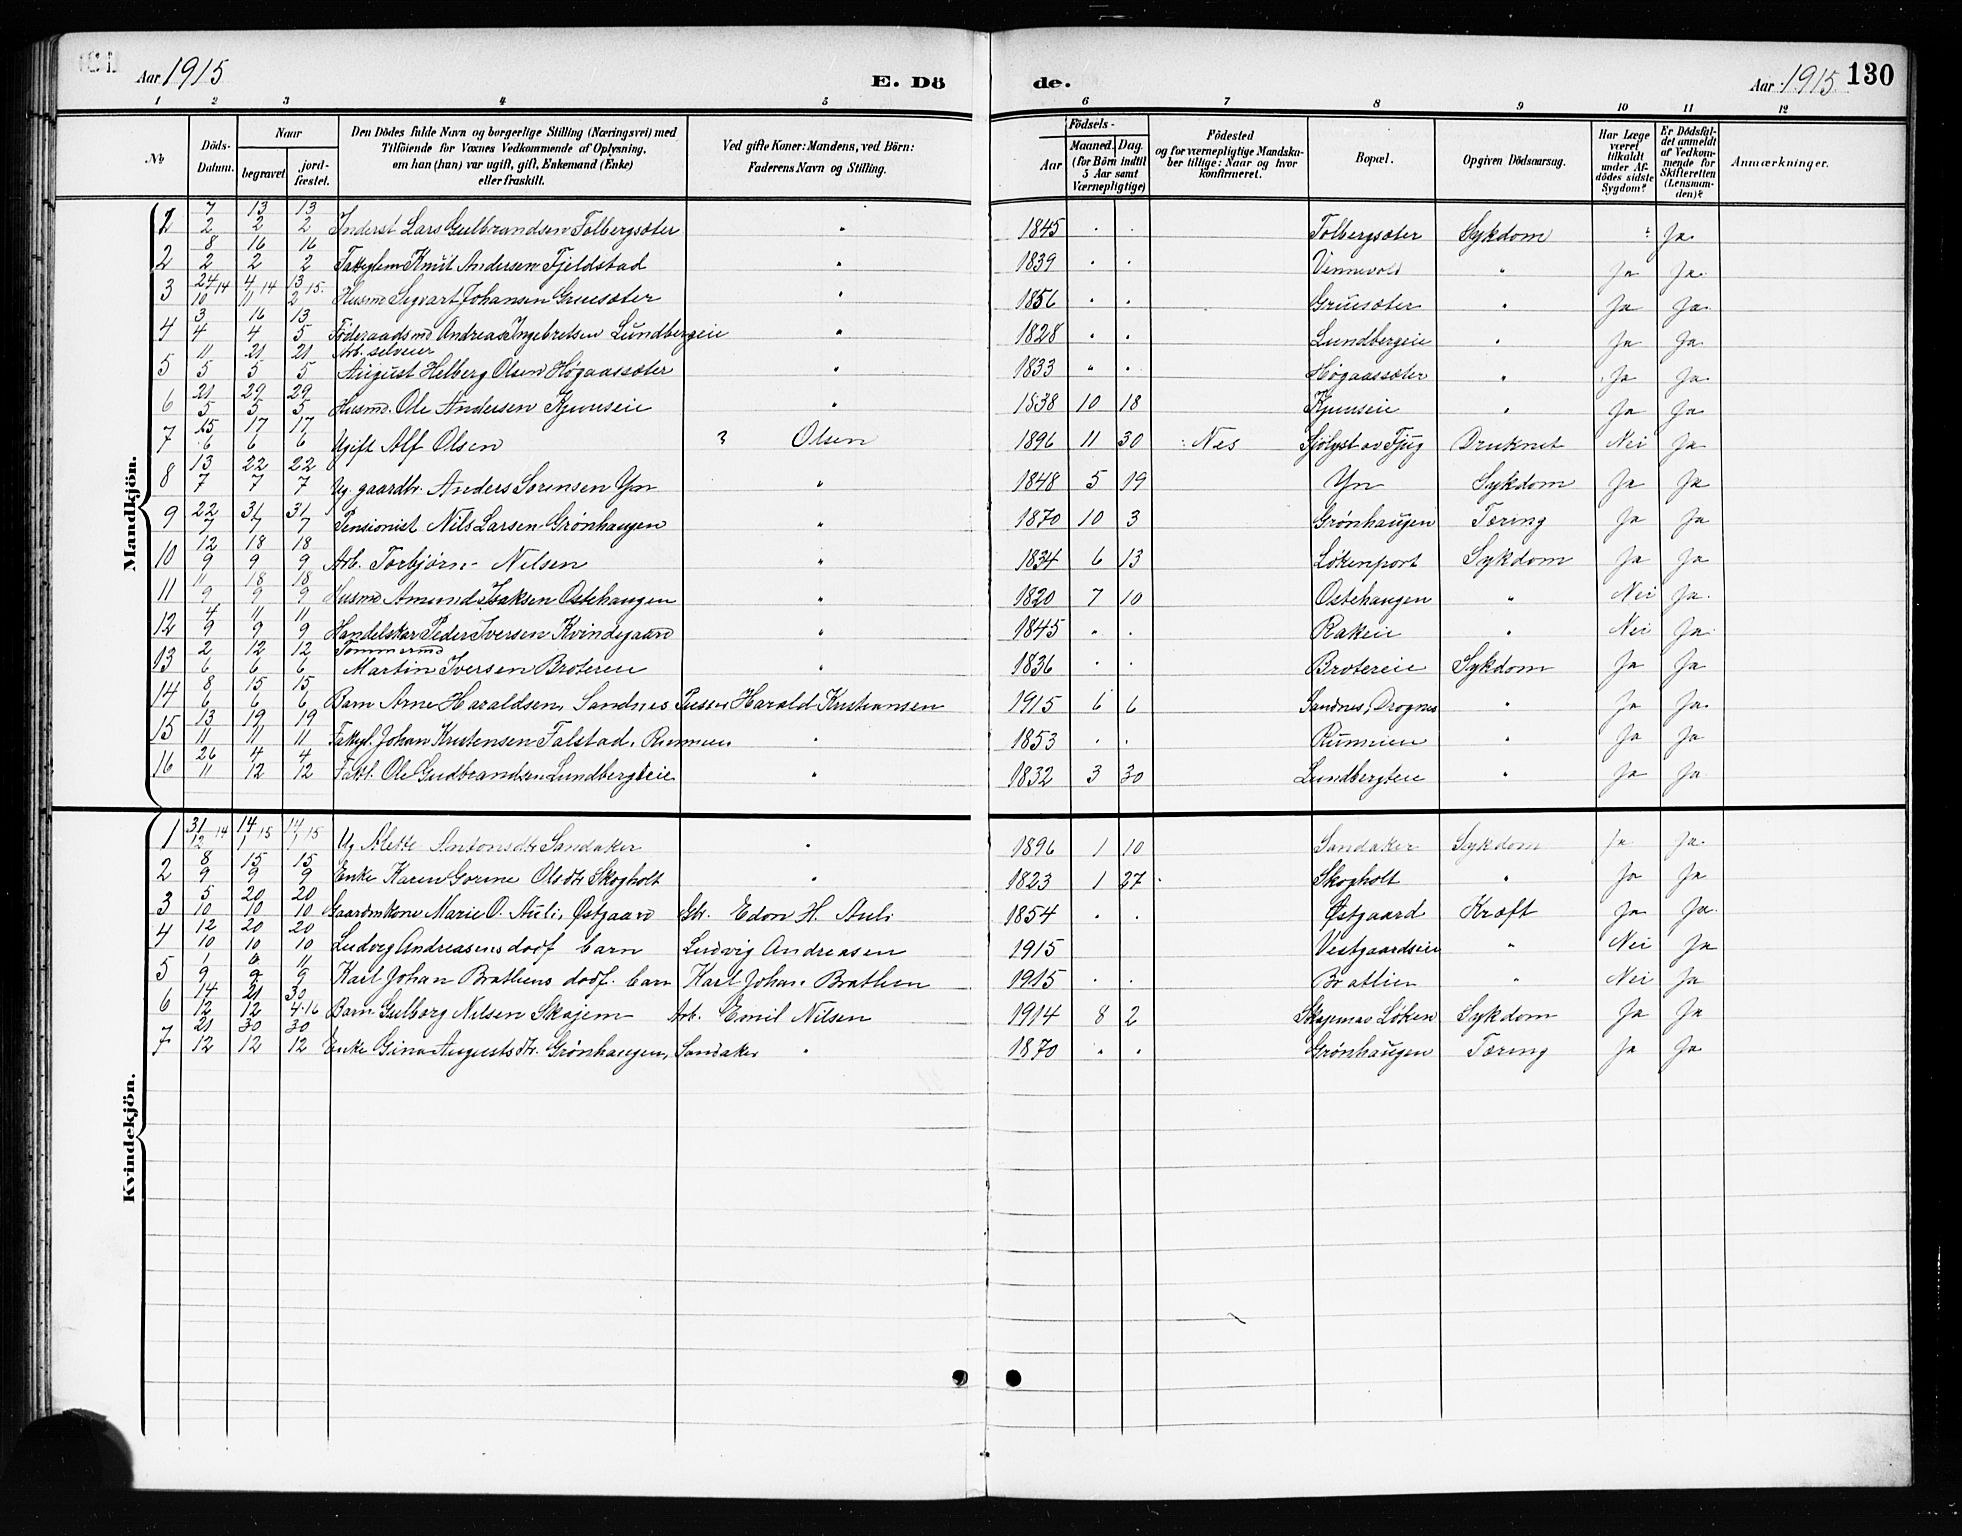 Aar 1915 E. Dö de. Aar 1915 130
1 2 3 4 5 6 7 8 9 10 11 12
№ Döds-Datum. Naar begravet jordfæstet. Den Dödes fulde Navn og borgerlige Stilling (Næringsvei) med Tilföiende for Voxnes Vedkommende af Oplysning, om han (hun) var ugift, gift, Enkemand (Enke) eller fraskilt. Ved gifte Koner: Mandens, ved Börn: Faderens Navn og Stilling. Födsels- Aar Maaned. Dag. (for Börn indtil 5 Aar samt Værnepligtige) Födested og for værnepligtige Mandskaber tillige: Naar og hvor konfirmeret. Bopæl. Opgiven Dödsaarsag. Har Læge været tilkaldt under Afdödes sidste Sygdom? Er Dödsfaldet anmeldt af Vedkommende for Skifteretten (Lensmanden)? Anmærkninger.
Mandkjön.
1 7/2 13/2 13/2 Inderst Lars Gulbrandsen Tolbergsæter " 1845 . . Tolbergsæter Sykdom Ja
2 8/2 16/2 16/2 Knut Andersen Fjeldstad " 1839 . . Vennevold " Ja Ja
3 24/10 14 4/11 14 13/2 15. Husmd Sigvart Johansen Gruesæter " 1856 . . Gruesæter " Ja Ja
4 3/4 16/4 13/5 Föderaadsmd Andreas Ingebretsen Lundbergeie " 1828 . . Lundbergeie " Ja Ja
5 11/5 21/5 21/5 Arb. selveier August Helberg Olsen Høgaassæter " 1833 " . Høgaassæter " Ja Ja
6 21/5 29/5 29/5 Husmd. Ole Andersen Kjuuseie " 1838 10 18 Kjuuseie " Ja Ja
7 15/6 17/6 17/6 Ugift Alf Olsen ? Olsen 1896 11 30 Nes Sjølyst av Fjug Druknet Nei Ja
8 13/7 22/7 22/7 Ug. gaardbr. Anders Sørensen Yn " 1848 5 19 Yn Sykdom Ja Ja
9 22/7 31/7 31/7 Pensionist Nils Larsen Grønhaugen " 1870 10 3 Grønhaugen Tæring Ja Ja
10 12/9 18/9 18/9 Arb. Torbjørn Nilsen " 1834 6 13 Løkenport Sykdom Ja Ja
11 11/9 18/9 18/9 Husmd Amund Isaksen Ostehaugen " 1820 7 10 Ostehaugen " Nei Ja.
12 4/9 11/9 11/9 Handelskar Peder Iversen Kvindegaard " 1845 " . Rakeie " Nei Ja
13 2/6 12/6 12/6 Tømmermd Martin Iversen Brotereie " 1836 . . Brotereie Sykdom Ja Ja
14 8/6 15/6 15/6 Barn Arne Haraldsen, Sandnes Harald Kristiansen 1915 6 6 Sandnes, Drognes " Ja Ja
15 13/11 19/11 19/11 Fattigl. Johan Kristensen Falstad, " 1853 . . " Ja Ja
16 26/11 4/12 4/12 Ole Gudbrandsen Lundbergteie " 1832 3 30 Lundbergteie " Ja Ja
Kvindekjön.
1 31/12 14 14/1 15 14/1 15 Ug Alette Antonsdtr Sandaker " 1896 1 10 Sandaker Sykdom Ja Ja.
2 8/9 15/9 15/9 Enke Karen Gorine Olsdtr Skogholt " 1823 1 27 Skogholt " Ja Ja
3 5/10 20/10 20/10 Gaardmkone Marie O. Auli, Østgaard Gbr. Edon H. Auli 1854 . . Østgaard Kræft Ja Ja.
4 12/10 20/10 20/10 Ludvig Andreasens dødf. barn Ludvig Andreasen 1915 Vestgaardseie " Nei Ja
5 1/9 9 11/9 Karl Johan Brathens dødf. barn Karl Johan Brathen 1915 . . Brathen " Nei Ja
6 14/12 21/12 30/4.16 Barn Gulborg Nilsen Skajem Arb. Emil Nilsen 1914 8 2 Løken Sykdom Ja Ja
7 21/12 30/12 30/12 Enke Gina Augustsdtr. Grønhaugen, Sandaker " 1870 " . Grønhaugen Tæring Ja Ja